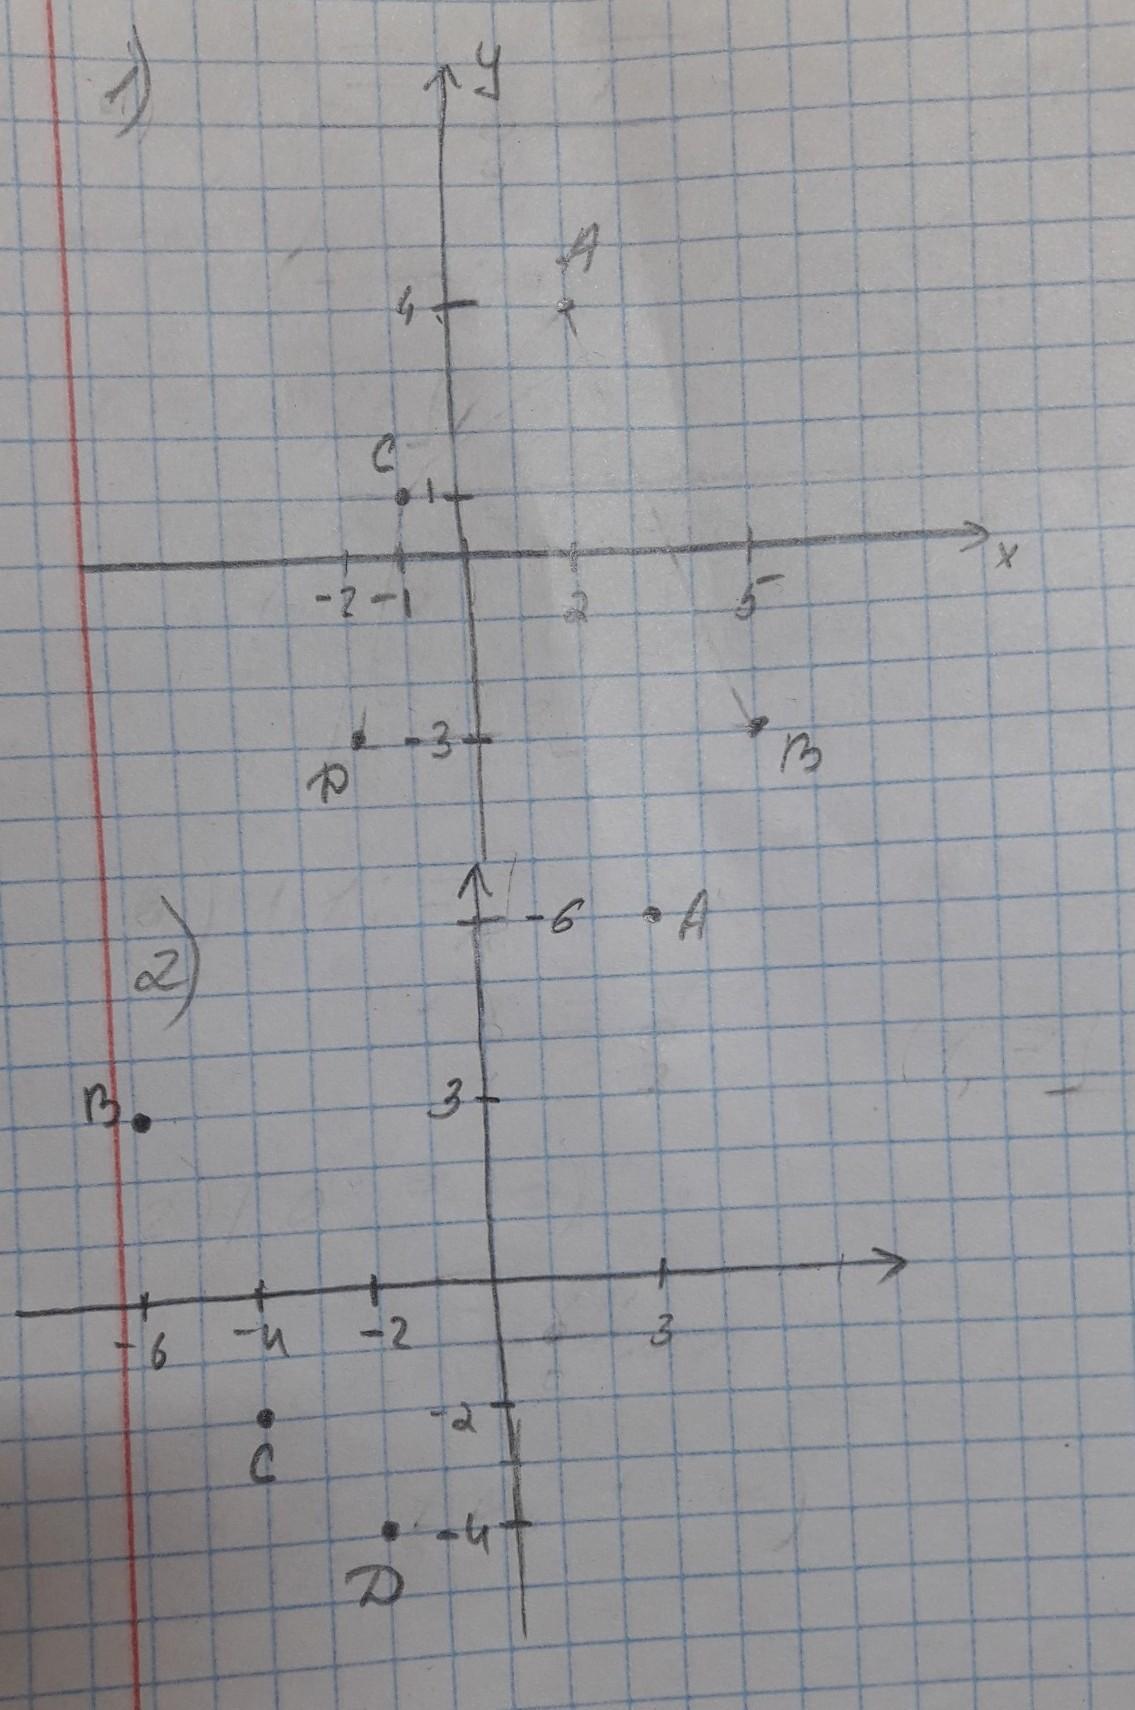 1)
y
A
4
C
1
x
-2 -1 2 5
D -3 B
-6 A
2)
B 3
-6 -4 -2 3
-2
C
-4
D